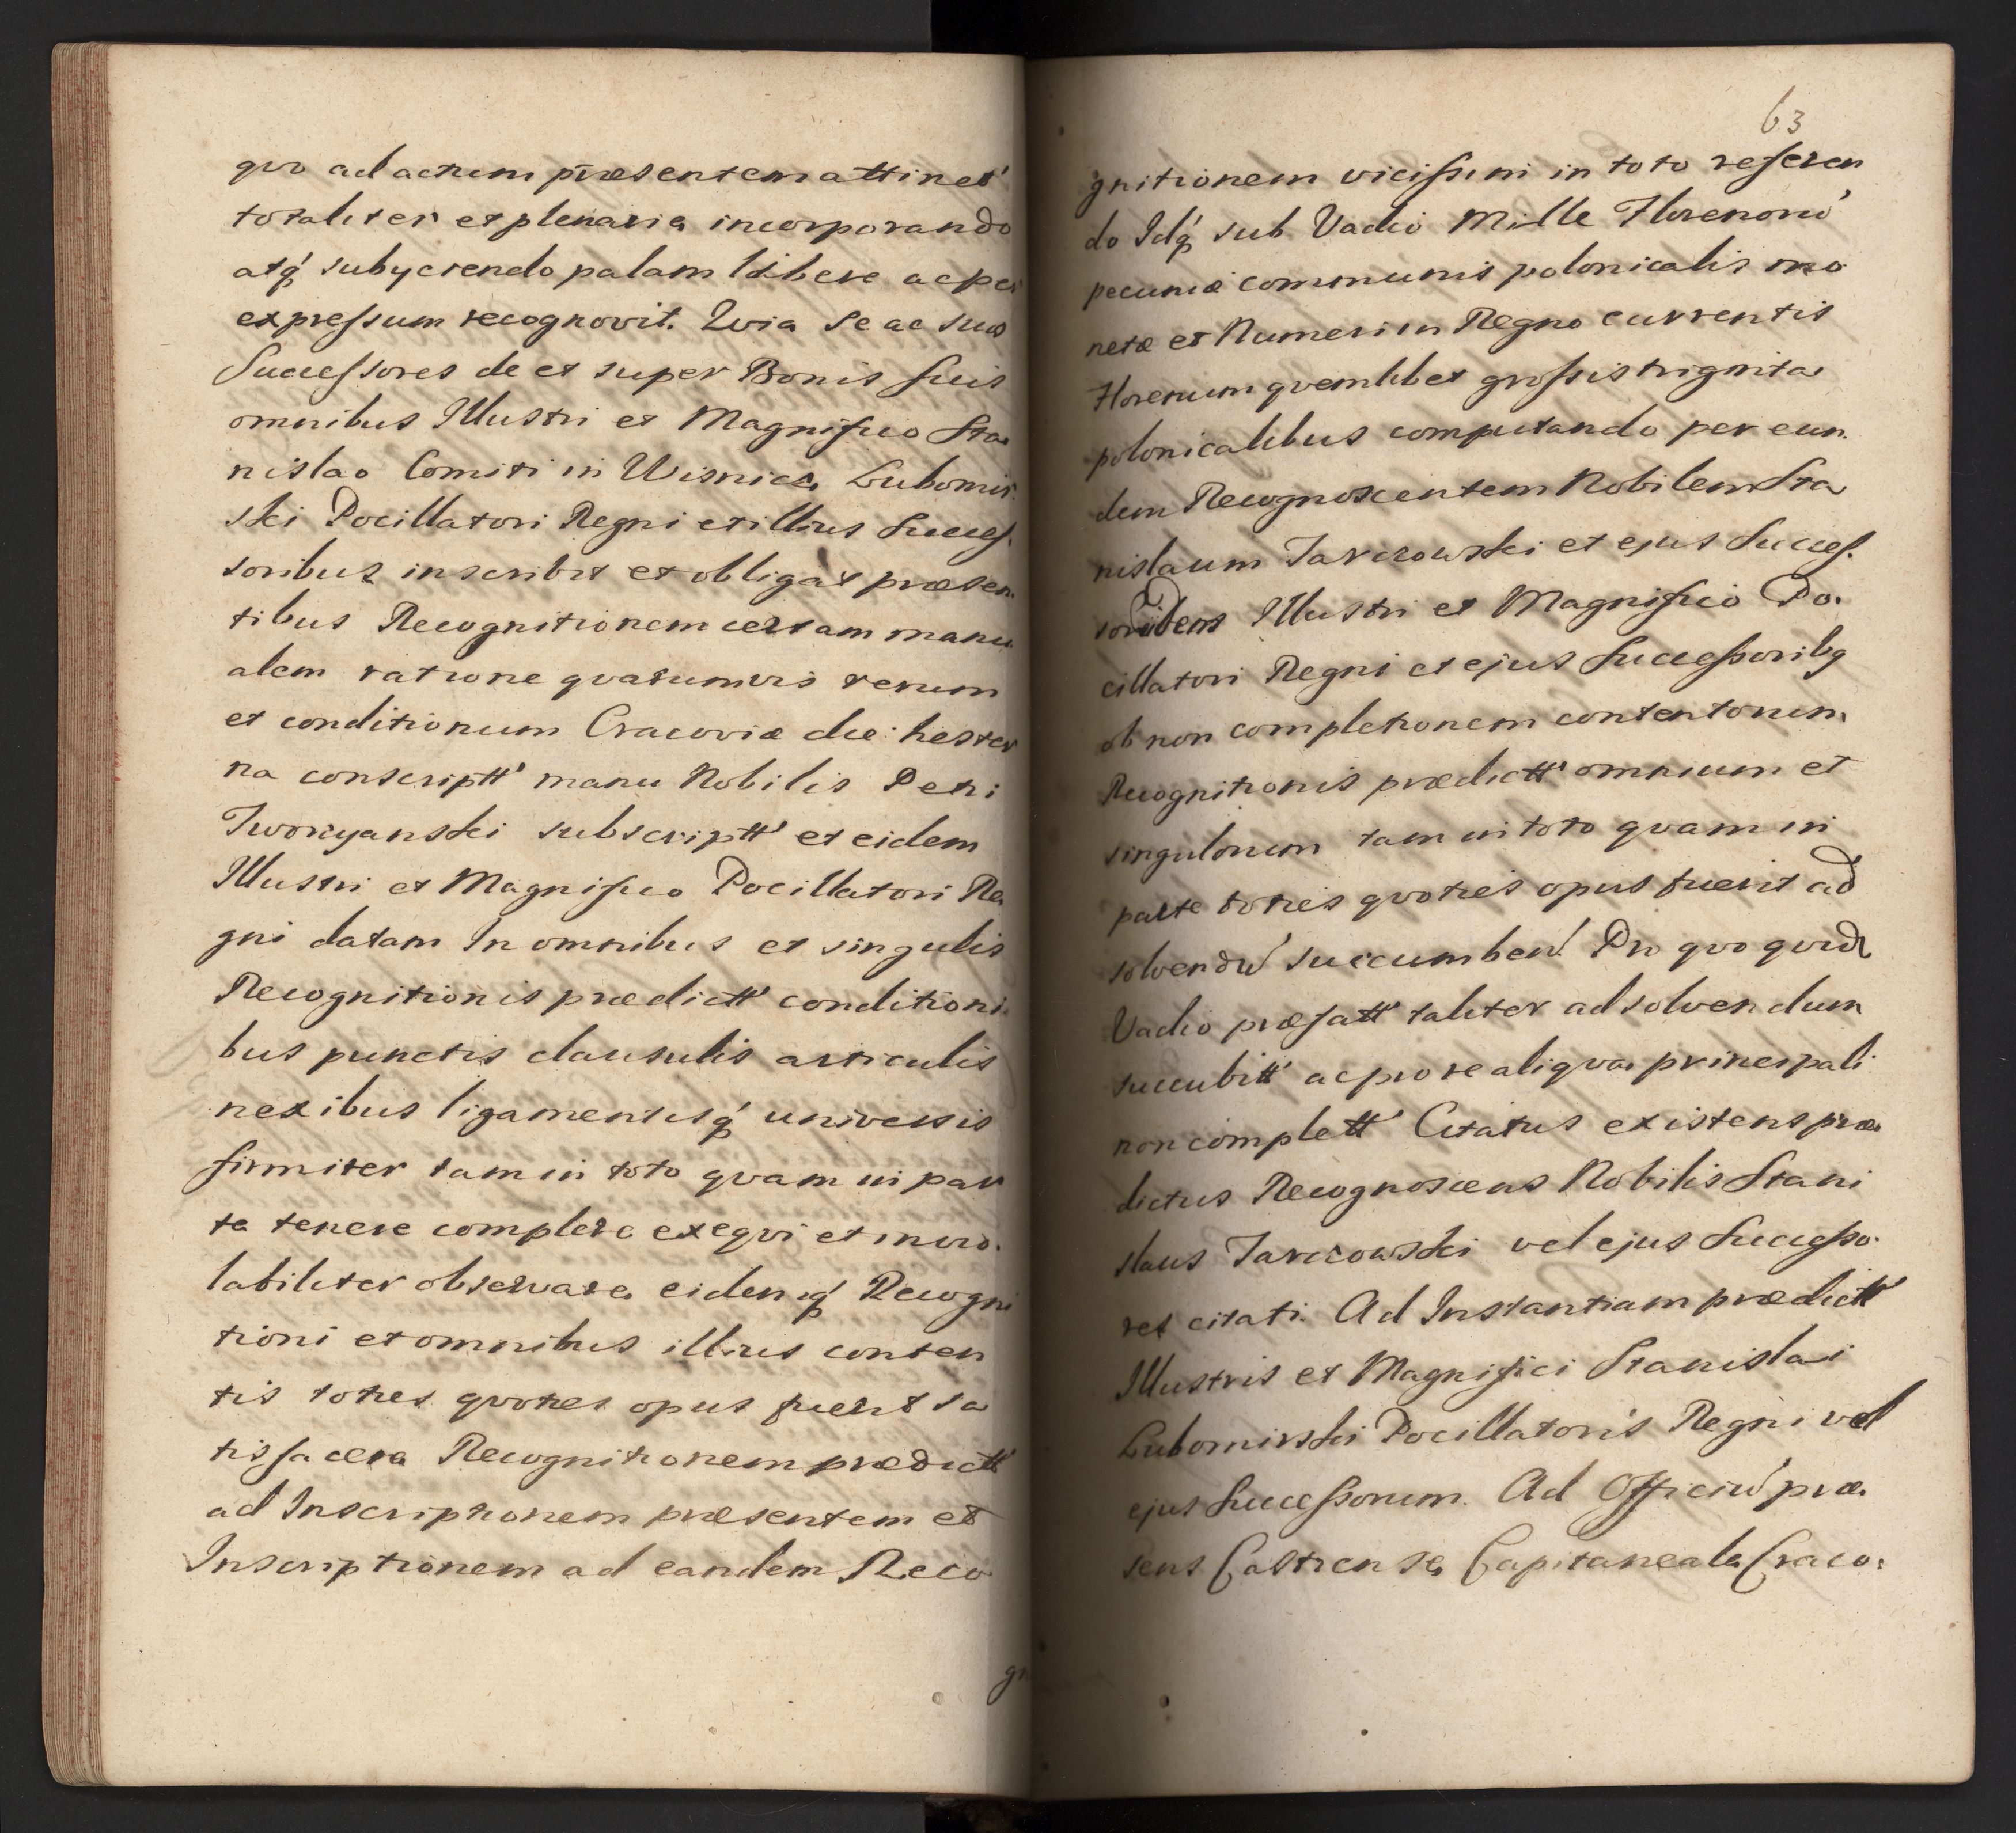 qvo ad actum præsentem attinet
totaliter et plenarie incorporando
atq́ subyciendo palam libere ac per
expressum recognovit. Qvia Se ac suos
Successores de et super Bonis suis
omnibus Illustri et Magnifico Sta
nislao Comiti in Wisnicz Lubomir
ski Pocillatori Regni et illius Succes.
soribus inscribit et obligat præsen
tibus Recognitionem certam manu
alem ratione qvarumvis rerum
et conditionum Cracoviæ die hester
na conscriptt' manu Nobilis Petri
Iworzyanski subscriptt' et eidem
Illustri et Magnifico Pocillatori Re
gni datam In omnibus et singulis
Recognitionis prædictt' conditioni
bus punctis clausulis articulis
nexibus ligamentisq́ universis
firmiter tam in toto qvam in par
te tenere complere exeqvi et invio.
labiliter observare eidemq́ Recogni
tioni et omnibus illius conten
tis toties qvoties opus fuerit sa
tisfacere Recognitionem prædictt'
ad Inscriptionem præsentem et
Inscriptionem ad eandem Reco
gn
63
gnitionem vicissim in toto referen
do Idq́ sub Vadio Mille Florenorū
pecuniæ communis polonicalis mo
netæ et Numeri in Regno currentis
Florenum qvemlibet grossis triginta
polonicalibus computando per eun.
dem Recognoscentem Nobilem Sta
nislaum Jarczowski et ejus Succes.
Illustri et Magnifico Po.
cillatori Regni et ejus Successoribq
ob non completionem contentorum
Recognitionis prædictt' omnium et
singulorum tam in toto qvam in
parte toties qvoties opus fuerit ad
solvendū succumben! Pro qvo qvid
Vadio præfatt' taliter ad solvendum
succubitt' ac pro re aliqva principali
non complett' Citatus existens præ
dictus Recognoscens Nobilis Stani
slaus Jarczowski vel ejus Successo.
res citati. Ad Instantiam prædictt'
Illustris et Magnifici Stanislai
Lubomirski Pocillatoris Regni vel
ejus Successorum. Ad Officiū præ
sens Castrense Capitaneale Craco: